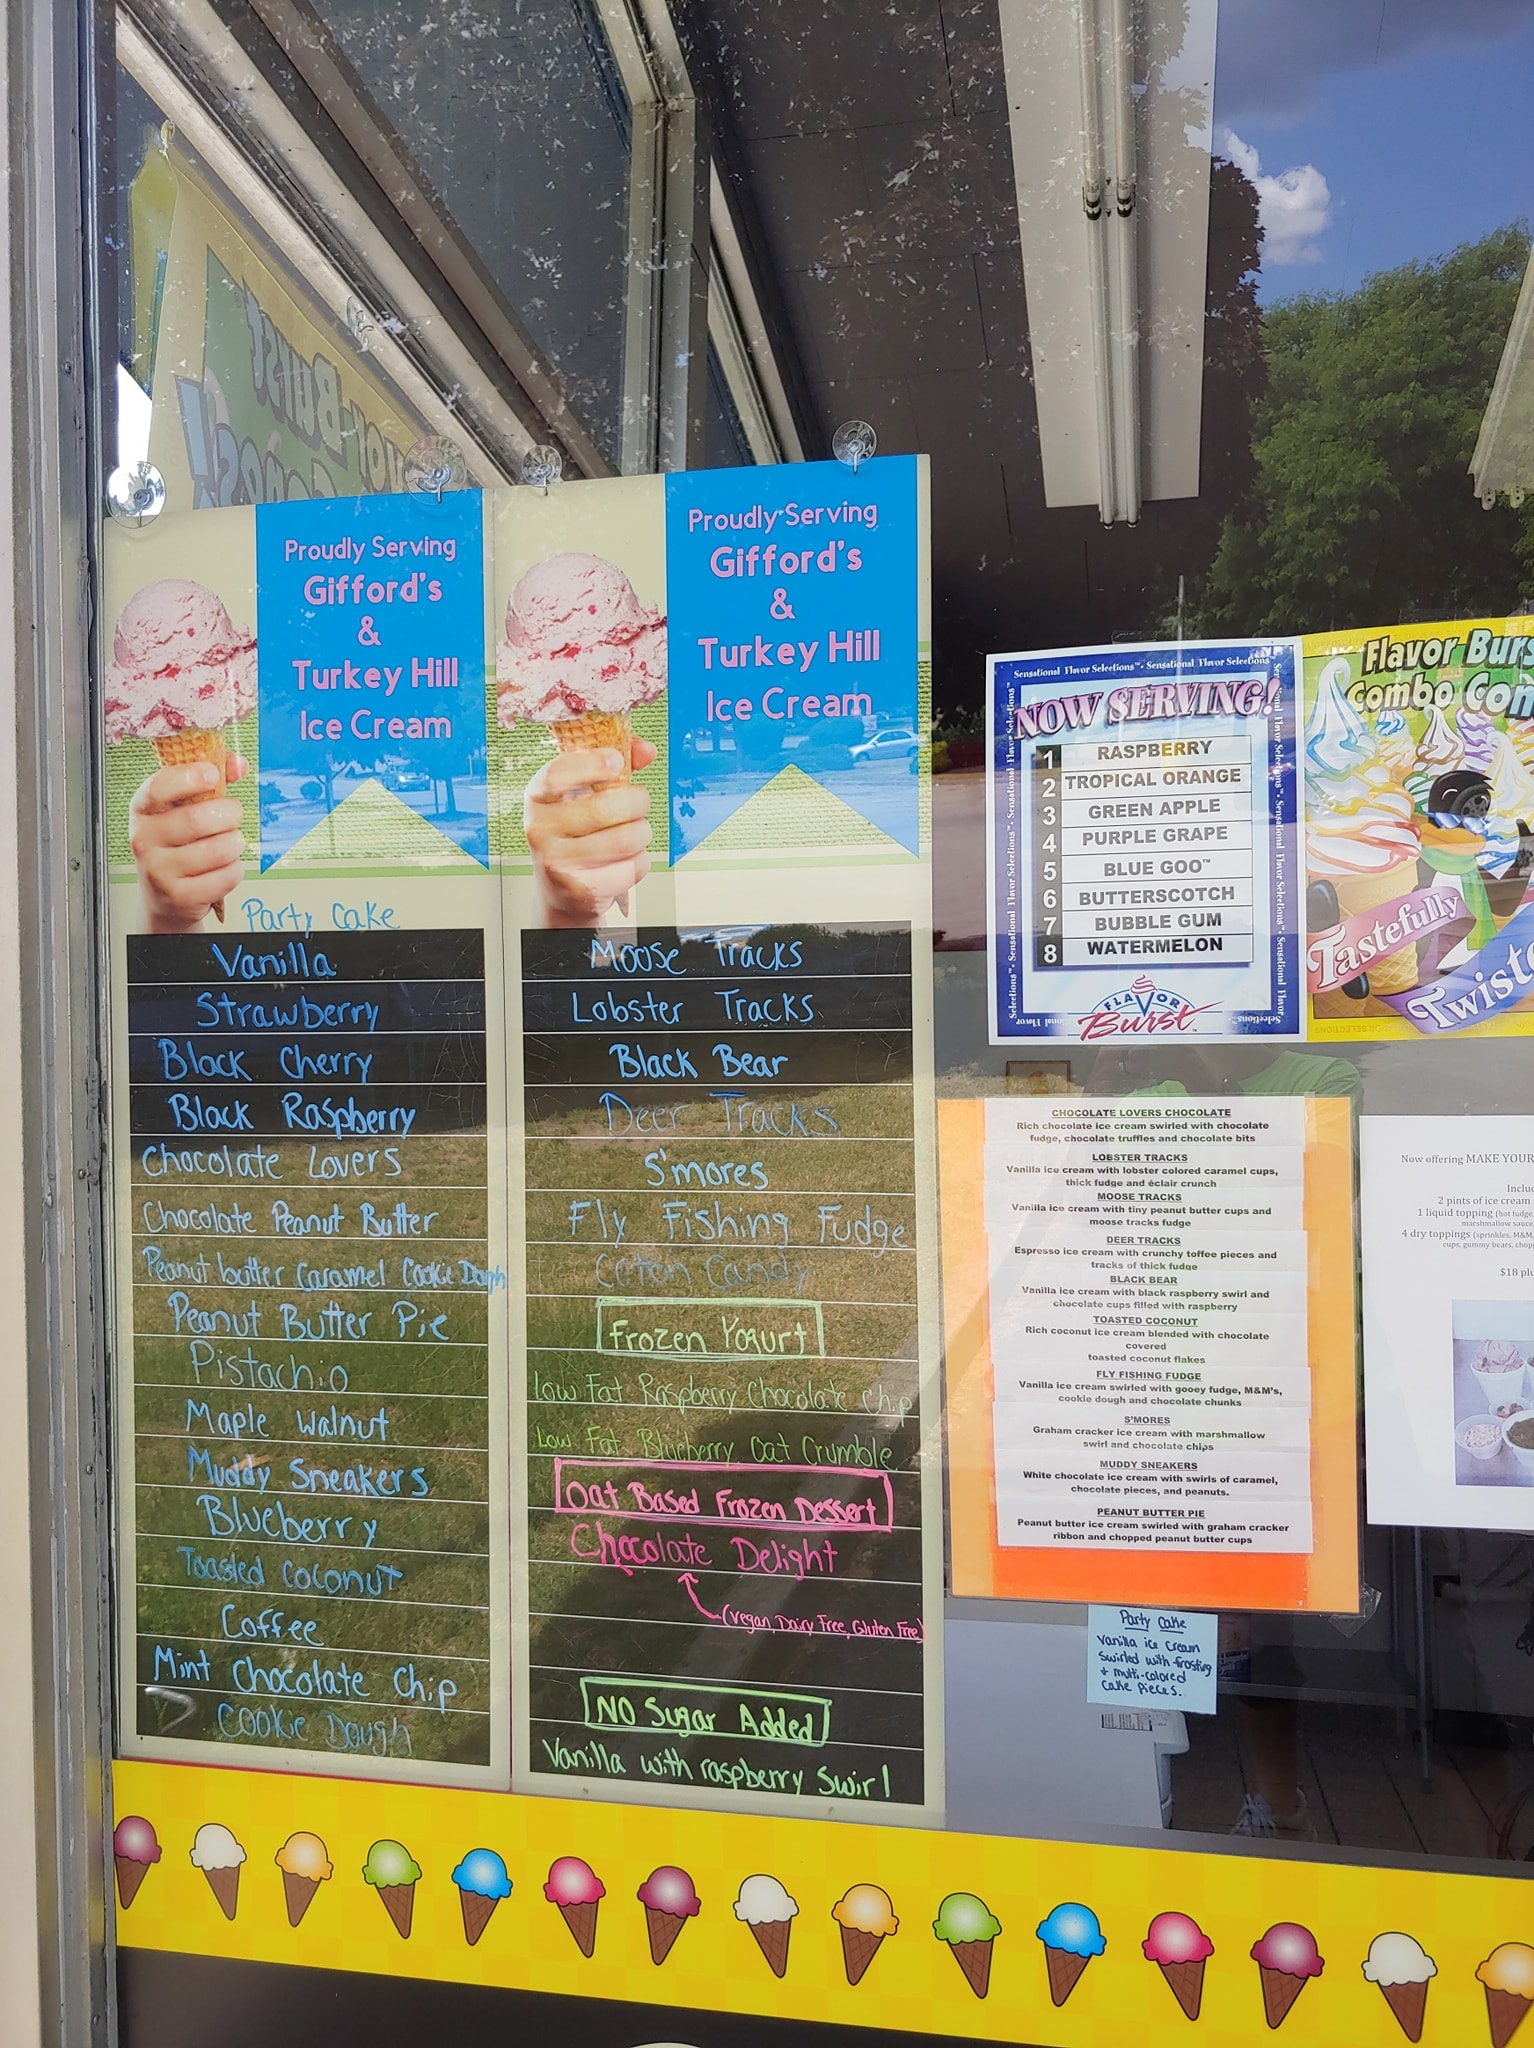 Proudly Serving
Gifford's
&
Turkey Hill
Ice Cream
Party Cake
Vanilla
Strawberry
Black Cherry
Black Raspberry
Chocolate Lovers
Chocolate Peanut Butter
Peanut butter caramel Cookie Dough
Peanut Butter Pie
Pistachio
Maple Walnut
Muddy Sneakers
Blueberry
Toasted Coconut
Coffee
Mint Chocolate Chip
Cookie Dough
Proudly Serving
Gifford's
&
Turkey Hill
Ice Cream
Moose Tracks
Lobster Tracks
Black Bear
Deer Tracks
S'mores
Fly Fishing Fudge
Coton Candy
Frozen Yogurt
Low Fat Raspberry Chocolate Chip
Low Fat Blueberry Oat Crumble
Oat Based Frozen Dessert
Chocolate Delight
(Vegan, Dairy Free, Gluten Free)
No Sugar Added
Vanilla with raspberry Swirl
Sensational Flavor Selections™ • Sensational Flavor Selections
NOW SERVING!
1 RASPBERRY
2 TROPICAL ORANGE
3 GREEN APPLE
4 PURPLE GRAPE
5 BLUE GOO™
6 BUTTERSCOTCH
7 BUBBLE GUM
8 WATERMELON
FLAVOR
Burst
Flavor Burs
Combo Con
Tastefully
Twiste
CHOCOLATE LOVERS CHOCOLATE
Rich chocolate ice cream swirled with chocolate
fudge, chocolate truffles and chocolate bits
LOBSTER TRACKS
Vanilla ice cream with lobster colored caramel cups,
thick fudge and éclair crunch
MOOSE TRACKS
Vanilla ice cream with tiny peanut butter cups and
moose tracks fudge
DEER TRACKS
Espresso ice cream with crunchy toffee pieces and
tracks of thick fudge
BLACK BEAR
Vanilla ice cream with black raspberry swirl and
chocolate cups filled with raspberry
TOASTED COCONUT
Rich coconut ice cream blended with chocolate
covered
toasted coconut flakes
FLY FISHING FUDGE
Vanilla ice cream swirled with gooey fudge, M&M's,
cookie dough and chocolate chunks
S'MORES
Graham cracker ice cream with marshmallow
swirl and chocolate chips
MUDDY SNEAKERS
White chocolate ice cream with swirls of caramel,
chocolate pieces, and peanuts.
PEANUT BUTTER PIE
Peanut butter ice cream swirled with graham cracker
ribbon and chopped peanut butter cups
Party Cake
Vanilla ice cream
swirled with frosting
+ multi-colored
cake pieces.
Now offering MAKE YOUR
Inclu
2 pints of ice cream
1 liquid topping (hot fudge,
marshmallow sauce
4 dry toppings (sprinkles, M&M,
cups, gummy bears, chop
$18 plu